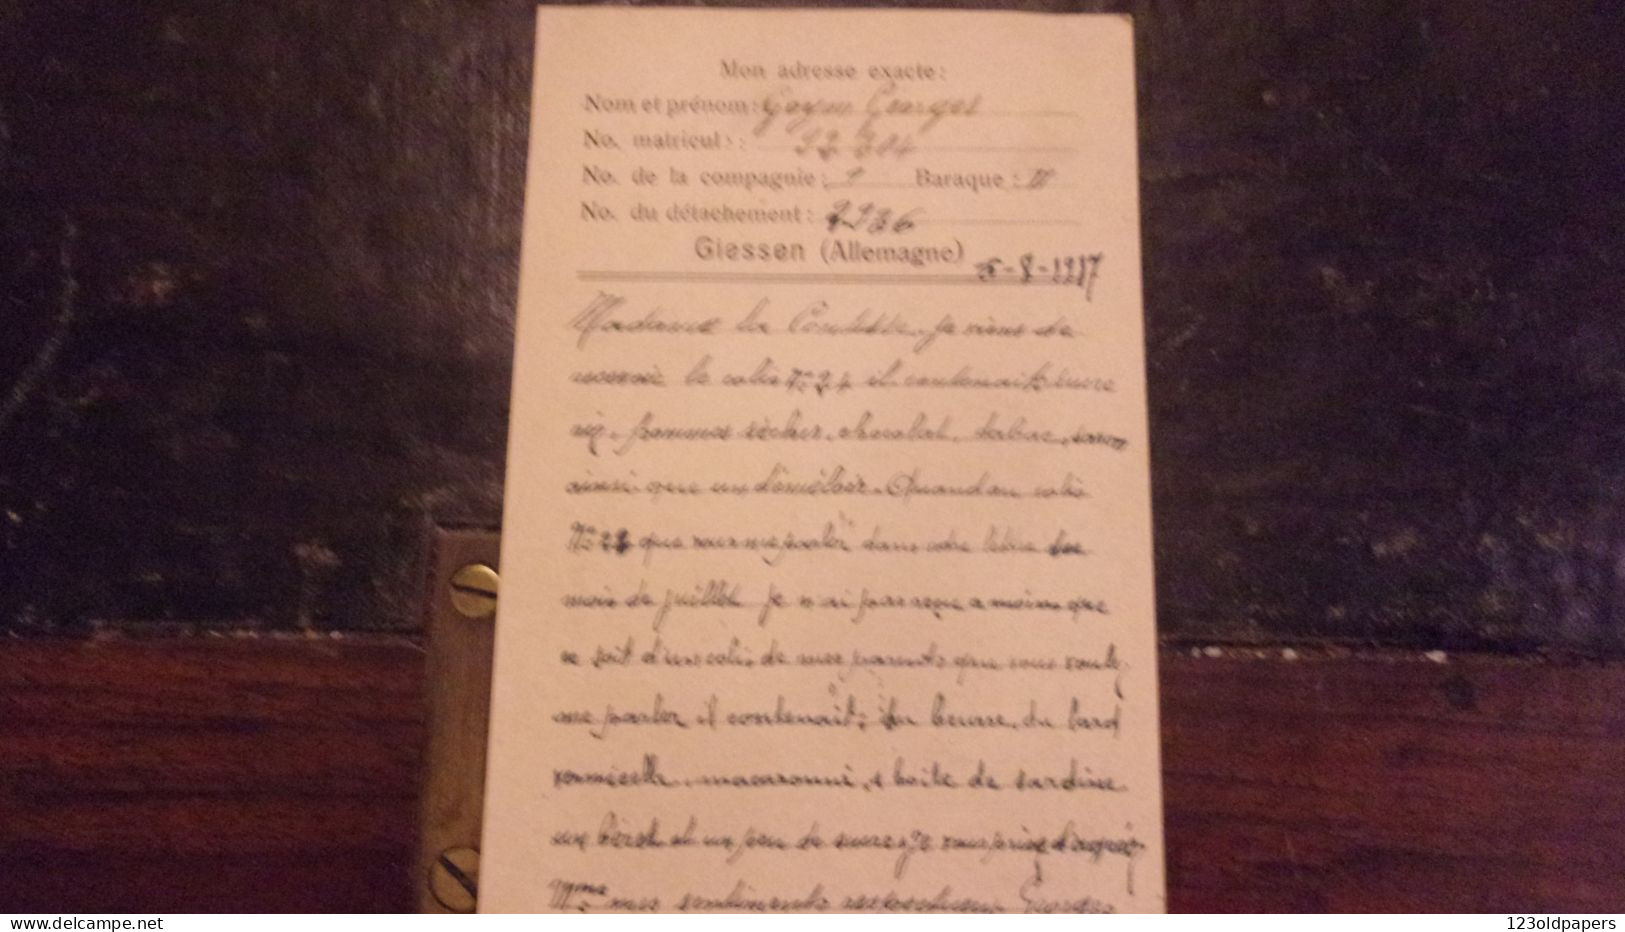 Mon adresse exacte:
Nom et prénom: Georges
No. matricul: 304
No. de la compagnie: Baraque:
No. du détachement: 2236
Giessen (Allemagne) 5-8-1917
Madame la Comtesse. Je viens de
recevoir le colis No 24 il contenait sucre
riz. pommes sèches. chocolat. tabac. savon
ainsi que un Quand au colis
No 22 que vous me parlez dans votre lettre du
mois de juillet Je n'ai pas reçu a moins que
ce soit d'un colis de mes parents que vous voulez
me parler il contenait: du beurre. du lard
vermicelle. macaronni, 1 boite de sardine
un béret et un peu de sucre. Je vous prie d'agréez
Mme mes sentiments respectueux Georges
123oldpapers